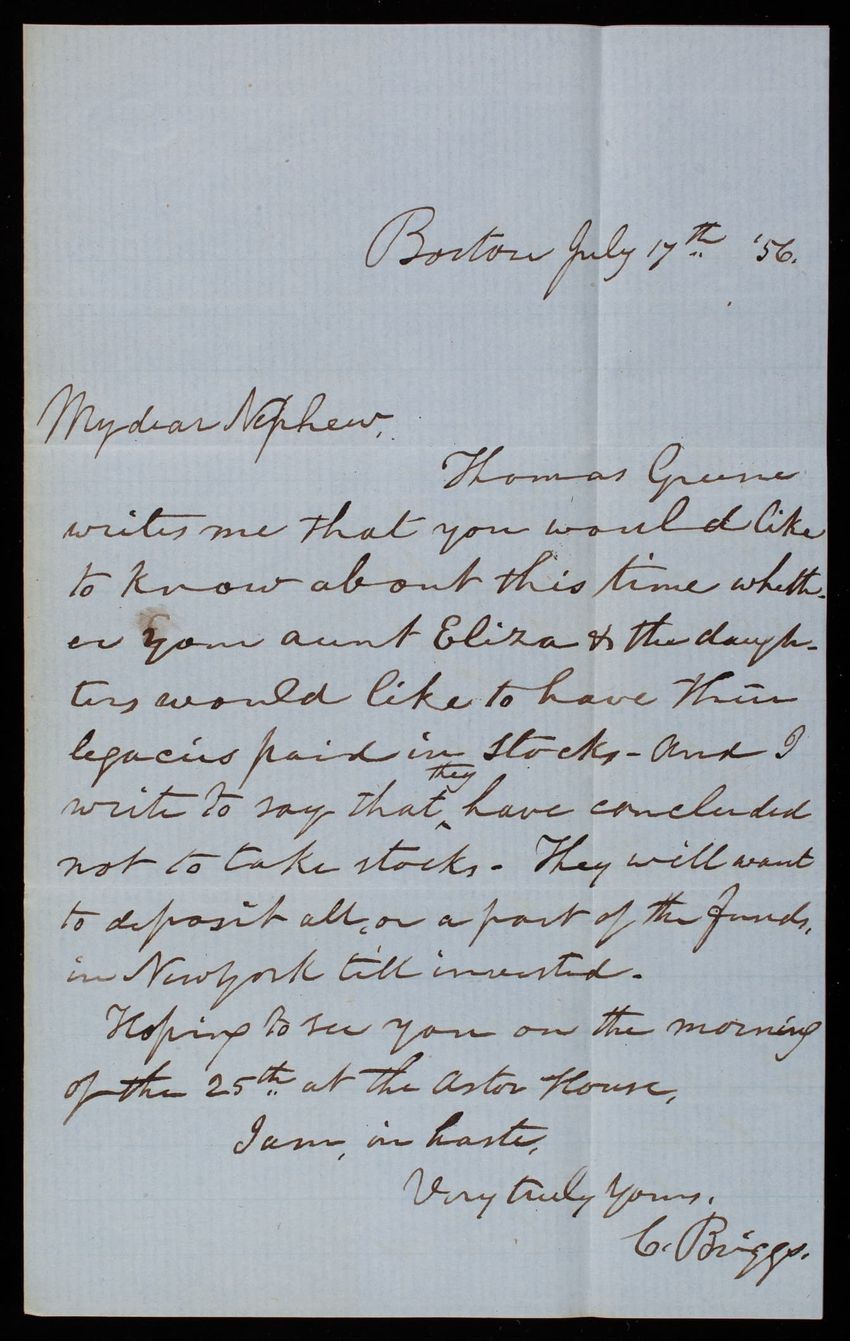 Boston July 17th '56.
My dear Nephew,
Thomas Greene
writes me that you would like
to know about this time wheth-
er your aunt Eliza & the daugh-
ters would like to have their
legacies paid in Stocks - And I
they
write to say that ^ have concluded
not to take stocks - They will want
to deposit all, or a part of the funds,
in New York till invested.
Hoping to see you on the morning
of the 25th at the Astor House,
I am, in haste,
Very truly Yours,
C. Briggs.